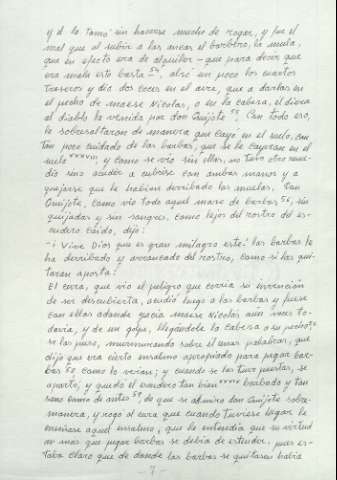 y él la tomó sin hacerse mucho de rogar, y fue el
mal que al subir a las ancas el barbero, la mula,
que en efecto era de alquiler – que para decir que
era mala esto basta 54, alzó un poco los cuartos
traseros y dio dos coces en el aire, que a darlas en
el pecho de maese Nicolás, o en la cabeza, él diera
al diablo la venida por don Quijote 55. Con todo eso,
le sobresaltaron de manera que cayó en el suelo, con
tan poco cuidado de las barbas, que se le cayeron en el
suelo xxxviii, y como se vio sin ellas, no tuvo otro reme-
dio sino acudir a cubrirse con ambas manos y a
quejarse que le habían derribado las muelas. Don
Quijote, como vio todo aquel mazo de barbas 56, sin
quijadas y sin sangre, como lejos del rostro del es-
cudero caído, dijo:
– ¡Vive Dios que es gran milagro este! las barbas le
ha derribado y arrancado del rostro, como si las qui-
taran aposta!
El cura, que vio el peligro que corría su invención
de ser descubierta, acudió luego a las barbas y fuese
con ellas adonde yacía maese Nicolás aún voces to-
davía, y de un golpe, llegándole la cabeza a su pecho
se las puso, murmurando sobre él unas palabras, que
dijo que era cierto ensalmo apropiado para pegar bar-
bas 58, como lo verían; y cuando se las tuvo puestas, se
apartó, y quedó el escudero tan bien barbado y tan
sano como de antes 59, de que se admiró don Quijote sobre-
manera, y rogó al cura que cuando tuviese lugar le
enseñase aquel ensalmo, que él entendía que su virtud
a más que pegar barbas se debía de estender, pues es-
taba claro que de donde las barbas se quitasen había
– 7 –